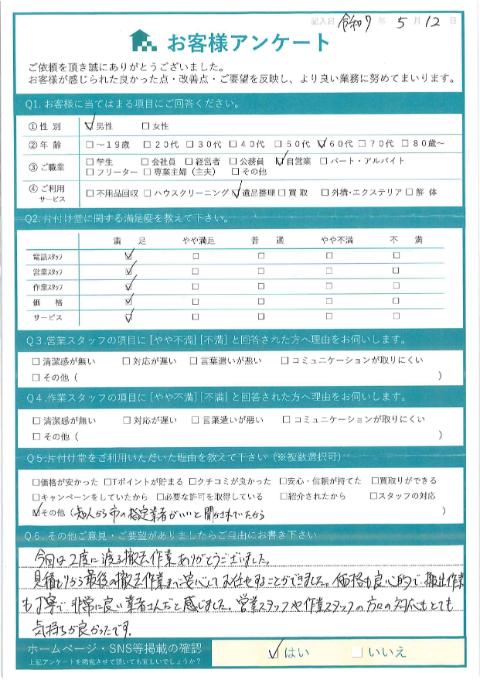 記入日 令和7年 5月 12日
お客様アンケート
ご依頼を頂き誠にありがとうございました。
お客様が感じられた良かった点・改善点・ご要望を反映し、より良い業務に努めてまいります。
Q1. お客様に当てはまる項目にご回答ください。
①性 別 ☑男性 □女性
②年 齢 □〜19歳 □20代 □30代 □40代 □50代 ☑60代 □70代 □80歳〜
③ご職業 □学生 □会社員 □経営者 □公務員 ☑自営業 □パート・アルバイト
□フリーター □専業主婦(主夫) □その他
④ご利用サービス □不用品回収 □ハウスクリーニング ☑遺品整理 □買 取 □外構・エクステリア □解 体
Q2. 片付け堂に関する満足度を教えて下さい。
満 足 やや満足 普 通 やや不満 不 満
電話スタッフ ☑ □ □ □ □
営業スタッフ ☑ □ □ □ □
作業スタッフ ☑ □ □ □ □
価 格 ☑ □ □ □ □
サービス ☑ □ □ □ □
Q3. 営業スタッフの項目に[やや不満][不満]と回答された方へ理由をお伺いします。
□清潔感が無い □対応が遅い □言葉遣いが悪い □コミュニケーションが取りにくい
□その他( )
Q4. 作業スタッフの項目に[やや不満][不満]と回答された方へ理由をお伺いします。
□清潔感が無い □対応が遅い □言葉遣いが悪い □コミュニケーションが取りにくい
□その他( )
Q5. 片付け堂をご利用いただいた理由を教えて下さい(※複数選択可)
□価格が安かった □Tポイントが貯まる □クチコミが良かった □安心・信頼が持てた □買取りができる
□キャンペーンをしていたから □必要な許可を取得している □紹介されたから □スタッフの対応
☑その他(知人から市の指定業者がいいと聞かされていたから
Q6. その他ご意見・ご要望がありましたらご自由にお書き下さい
今回は2度に渡る撤去作業ありがとうございました。
見積りから最後の撤去作業まで安心してお任せすることができました。価格も良心的で搬出作業
も丁寧で非常に良い業者さんだと感じました。営業スタッフや作業スタッフの方々の対応もとても
気持ちが良かったです。
ホームページ・SNS等掲載の確認 ☑はい □いいえ
上記アンケートを掲載させて頂いても宜しいでしょうか?